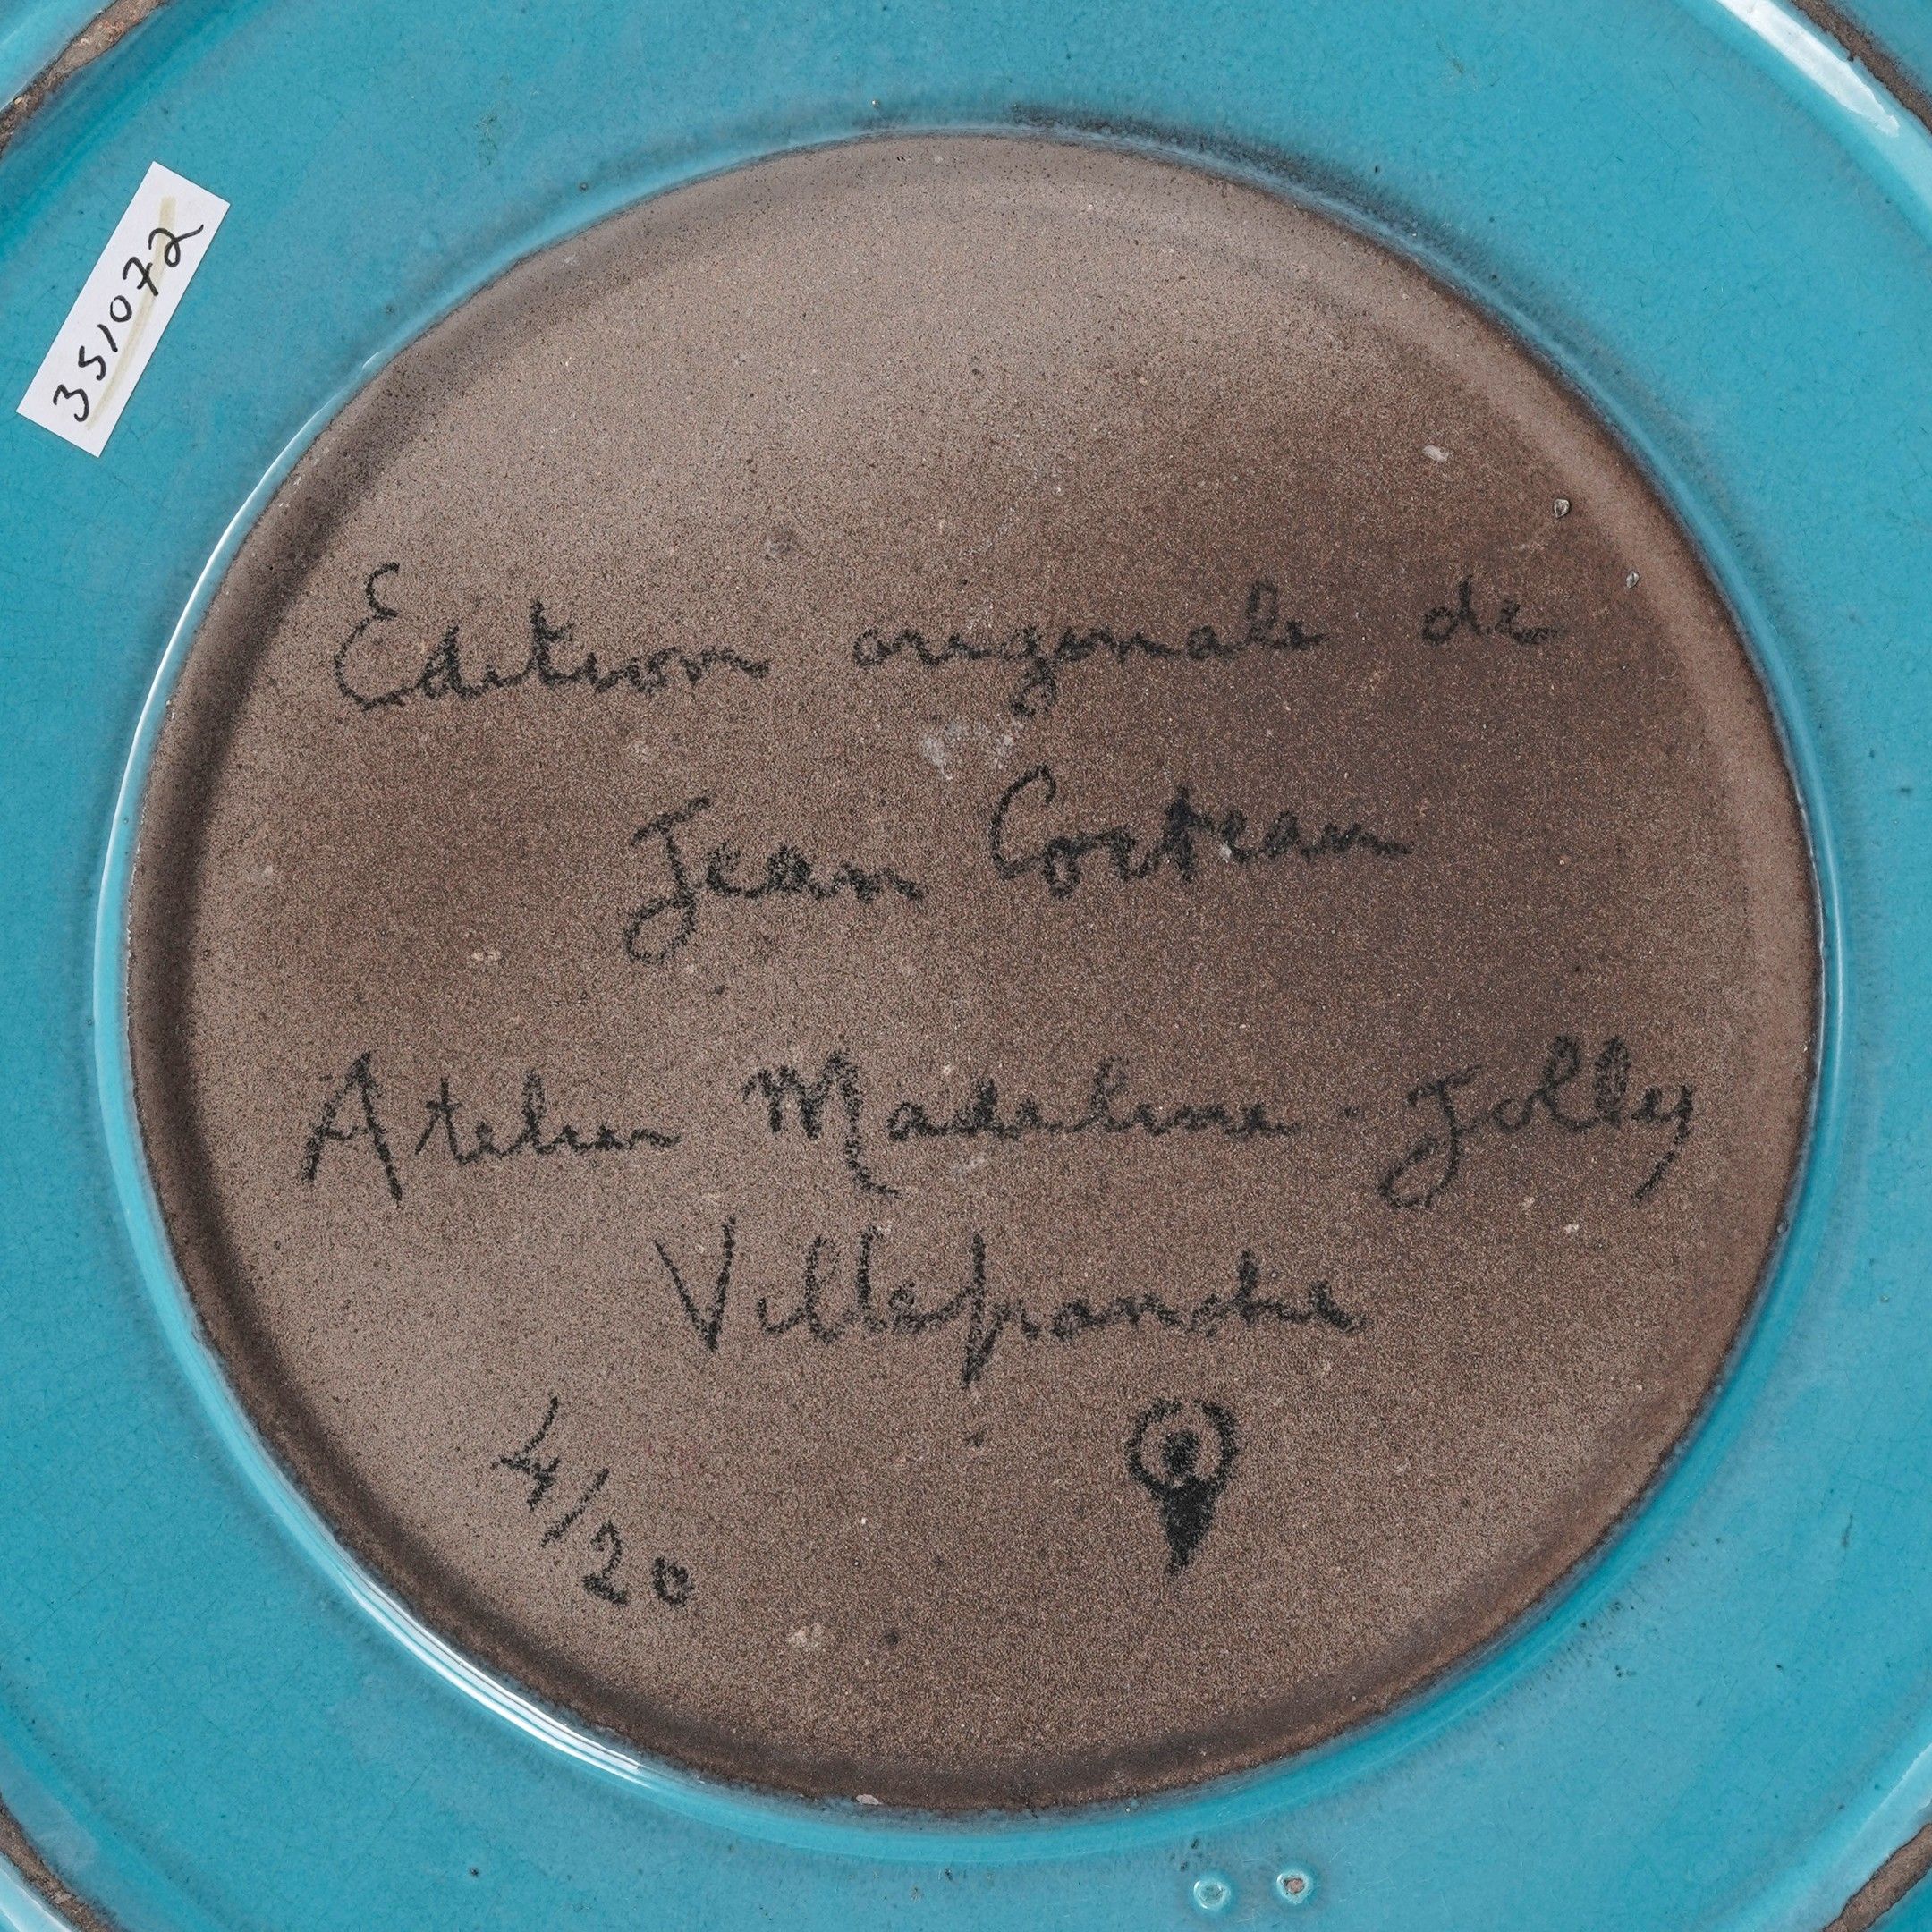 351072
Edition originale de
Jean Cocteau
Atelier Madeline-Jolly
Villefranche
4/20